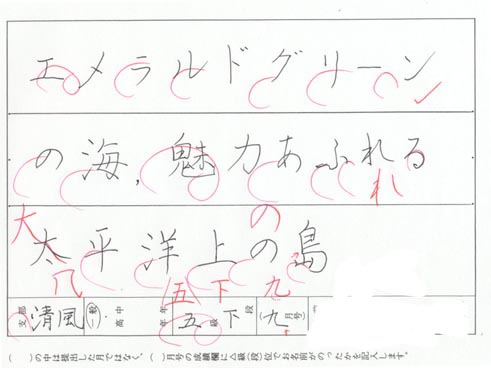 エメラルドグリーン
の海,魅力あふれる
れ
の
大
太平洋上の島
八 五 下 九
支部 清風 (一般) 高中 年年 五 級 段 下 (九月号)
( )の中は提出した月ではなく、( )月号の成績欄に△級(段)位でお名前がのったかを記入します。